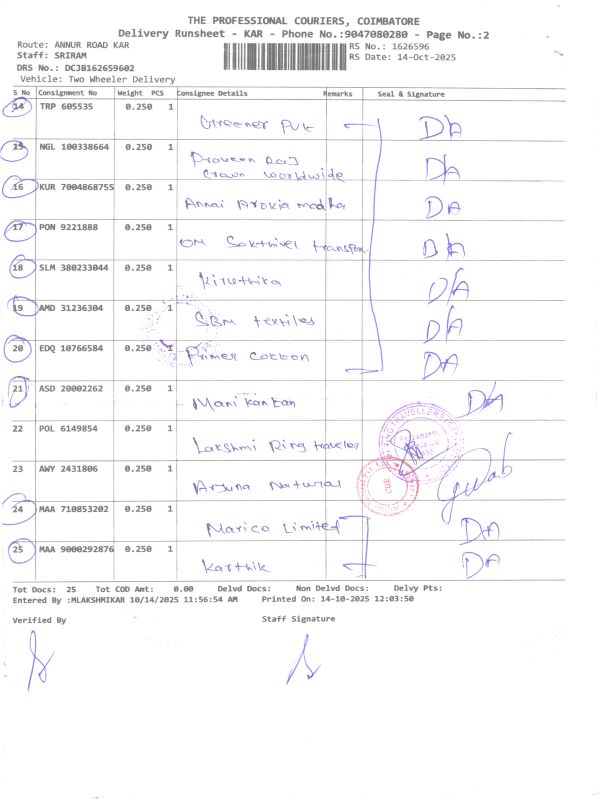 THE PROFESSIONAL COURIERS, COIMBATORE
Delivery Runsheet - KAR - Phone No.:9047080280 - Page No.:2
Route: ANNUR ROAD KAR
RS No.: 1626596
Staff: SRIRAM
RS Date: 14-Oct-2025
DRS No.: DCJB162659602
Vehicle: Two Wheeler Delivery
S No Consignment No Weight PCS Consignee Details Remarks Seal & Signature
14 TRP 605535 0.250 1 Greener Pvt DA
15 NGL 100338664 0.250 1 Praveen Raj
Crown Worldwide DA
16 KUR 7004868755 0.250 1 Annai Arokia madha DA
17 PON 9221888 0.250 1 OM Sakthivel transport DA
18 SLM 380233044 0.250 1 Kiruthika D/A
19 AMD 31236304 0.250 1 SBM textiles D/A
20 EDQ 10766584 0.250 1 Primer cotton DA
21 ASD 20002262 0.250 1 Manikantan D/A
22 POL 6149854 0.250 1 Lakshmi Ring traveler
23 AWY 2431806 0.250 1 Arjuna Natural
24 MAA 710853202 0.250 1 Marico Limited DA
25 MAA 9000292876 0.250 1 Karthik DA
Tot Docs: 25 Tot COD Amt: 0.00 Delvd Docs: Non Delvd Docs: Delvy Pts:
Entered By :MLAKSHMIKAR 10/14/2025 11:56:54 AM Printed On: 14-10-2025 12:03:50
Verified By Staff Signature